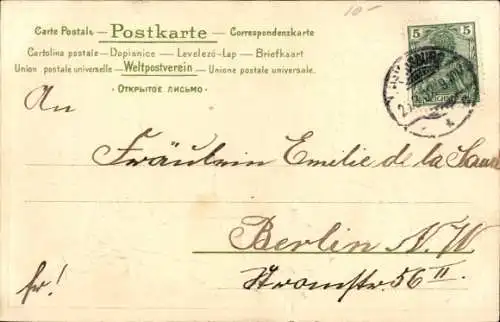 10-
Carte Postale - Postkarte - Correspondenzkarte
Cartolina postale - Dopisnice - Levelező-Lap - Briefkaart
Union postale universelle - Weltpostverein - Unione postale universale.
· ОТКРЫТОЕ ПИСЬМО ·
5 5
An
Fräulein Emilie de la
Berlin N. W.
Fr!
Stromstr. 56 II.